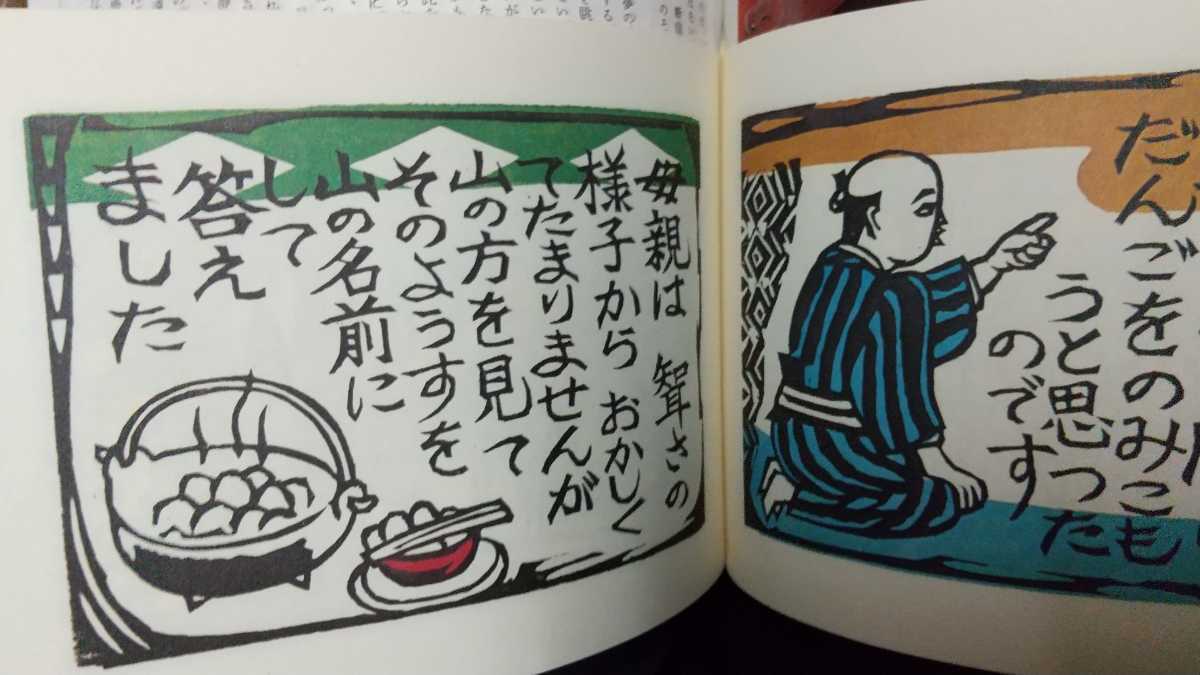 だんごをのみこも
うと思った
のです
母親は 聟さの
様子から おかしく
てたまりませんが
山の方を見て
そのようすを
山の名前に
して
答え
ました